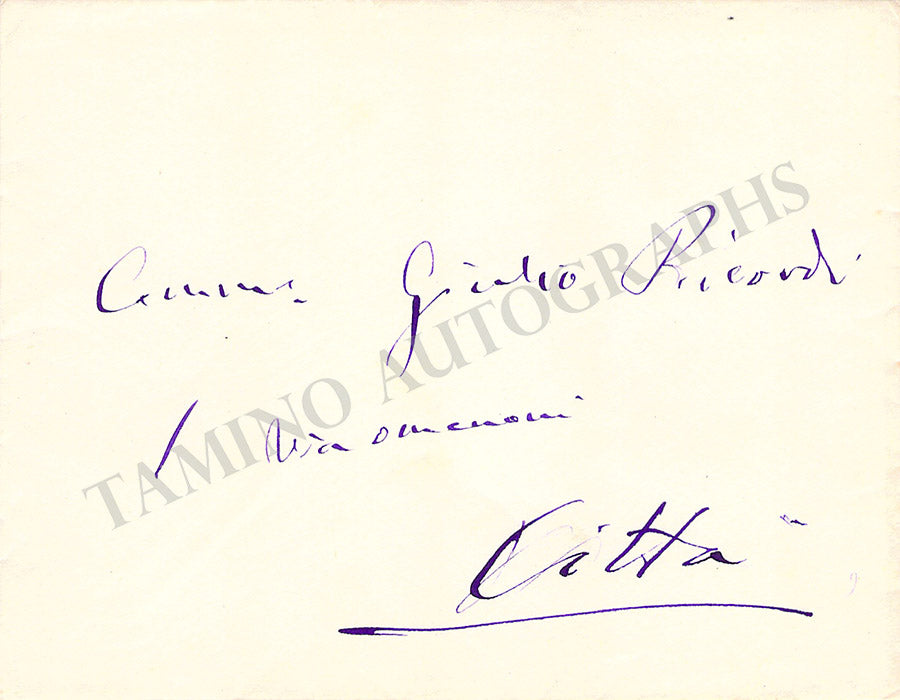 Comm. Giulio Ricordi
1 Via Omenoni
Città
TAMINO AUTOGRAPHS